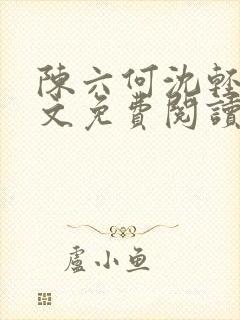 陳六何沈輕
文免費閱讀
盧小魚